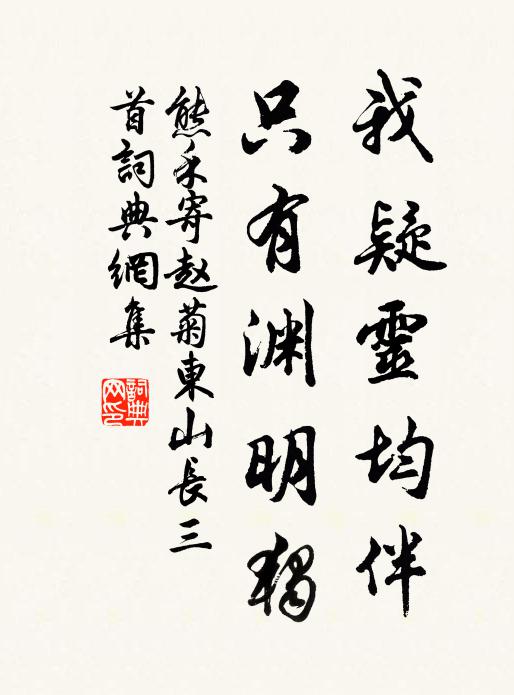 我疑靈均伴
只有淵明獨
熊禾寄趙菊東山長三
首詞典網集
詞典
网印